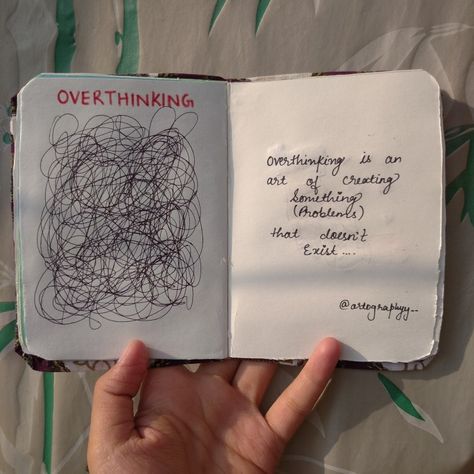 OVERTHINKING
Overthinking is an
art of creating
Something
(Problems)
that doesn't
Exist....
@artographyy__